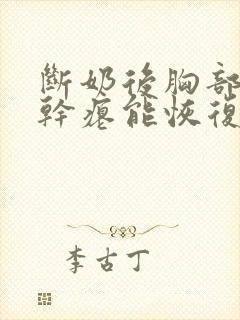 斷奶後胸部
幹瘪能恢復
李古丁